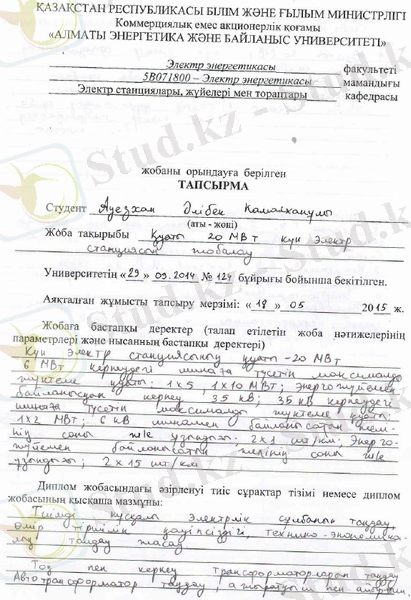 ҚАЗАҚСТАН РЕСПУБЛИКАСЫ БІЛІМ ЖӘНЕ ҒЫЛЫМ МИНИСТРЛІГІ
Коммерциялық емес акционерлік қоғамы
«АЛМАТЫ ЭНЕРГЕТИКА ЖӘНЕ БАЙЛАНЫС УНИВЕРСИТЕТІ»
Электр энергетикасы факультеті
5В071800 – Электр энергетикасы мамандығы
Электр станциялары, жүйелері мен тораптары кафедрасы
жобаны орындауға берілген
ТАПСЫРМА
Студент Ауезхан Әлібек
(аты - жөні)
Жоба тақырыбы Қуаты 20 МВт күн электр
станциясын жобалау
Университетің «29» 09.2014 № 124 бұйрығы бойынша бекітілген.
Аяқталған жұмысты тапсыру мерзімі: «18» 05 2015 ж.
Жобаға бастапқы деректер (талап етілетін жоба нәтижелерінің
параметрлері және нысанның бастапқы деректері)
Күн электр станциясының қуаты - 20 МВт
6 МВт кернеудегі шинаға түсетін максималды
жүктеме қуаты: 1х5, 1х10 МВт; энергожүйемен
байланысқан кернеу 35 кВ; 35 кВ кернеудегі
шинаға түсетін максималды жүктеме қуаты:
1х2 МВт; 6 кВ шинамен байланысатын
саны және ұзындығы: 2х1 шт/км; Энерго-
жүйемен байланысатын желінің саны және
ұзындығы: 2 х 15 шт/км
Диплом жобасындағы әзірленуі тиіс сұрақтар тізімі немесе диплом
жобасының қысқаша мазмұны:
электрлік сұлбасын таңдау,
өмір тіршілік қауіпсіздігі, технико-экономика-
таңдау жасау
Тоқ пен кернеу трансформаторларын таңдау
Автотрансформатор таңдау, ажыратқыш пен
Stud.kz - Stud.kz
Stud.kz - Stud.kz
Stud.kz - Stud.kz